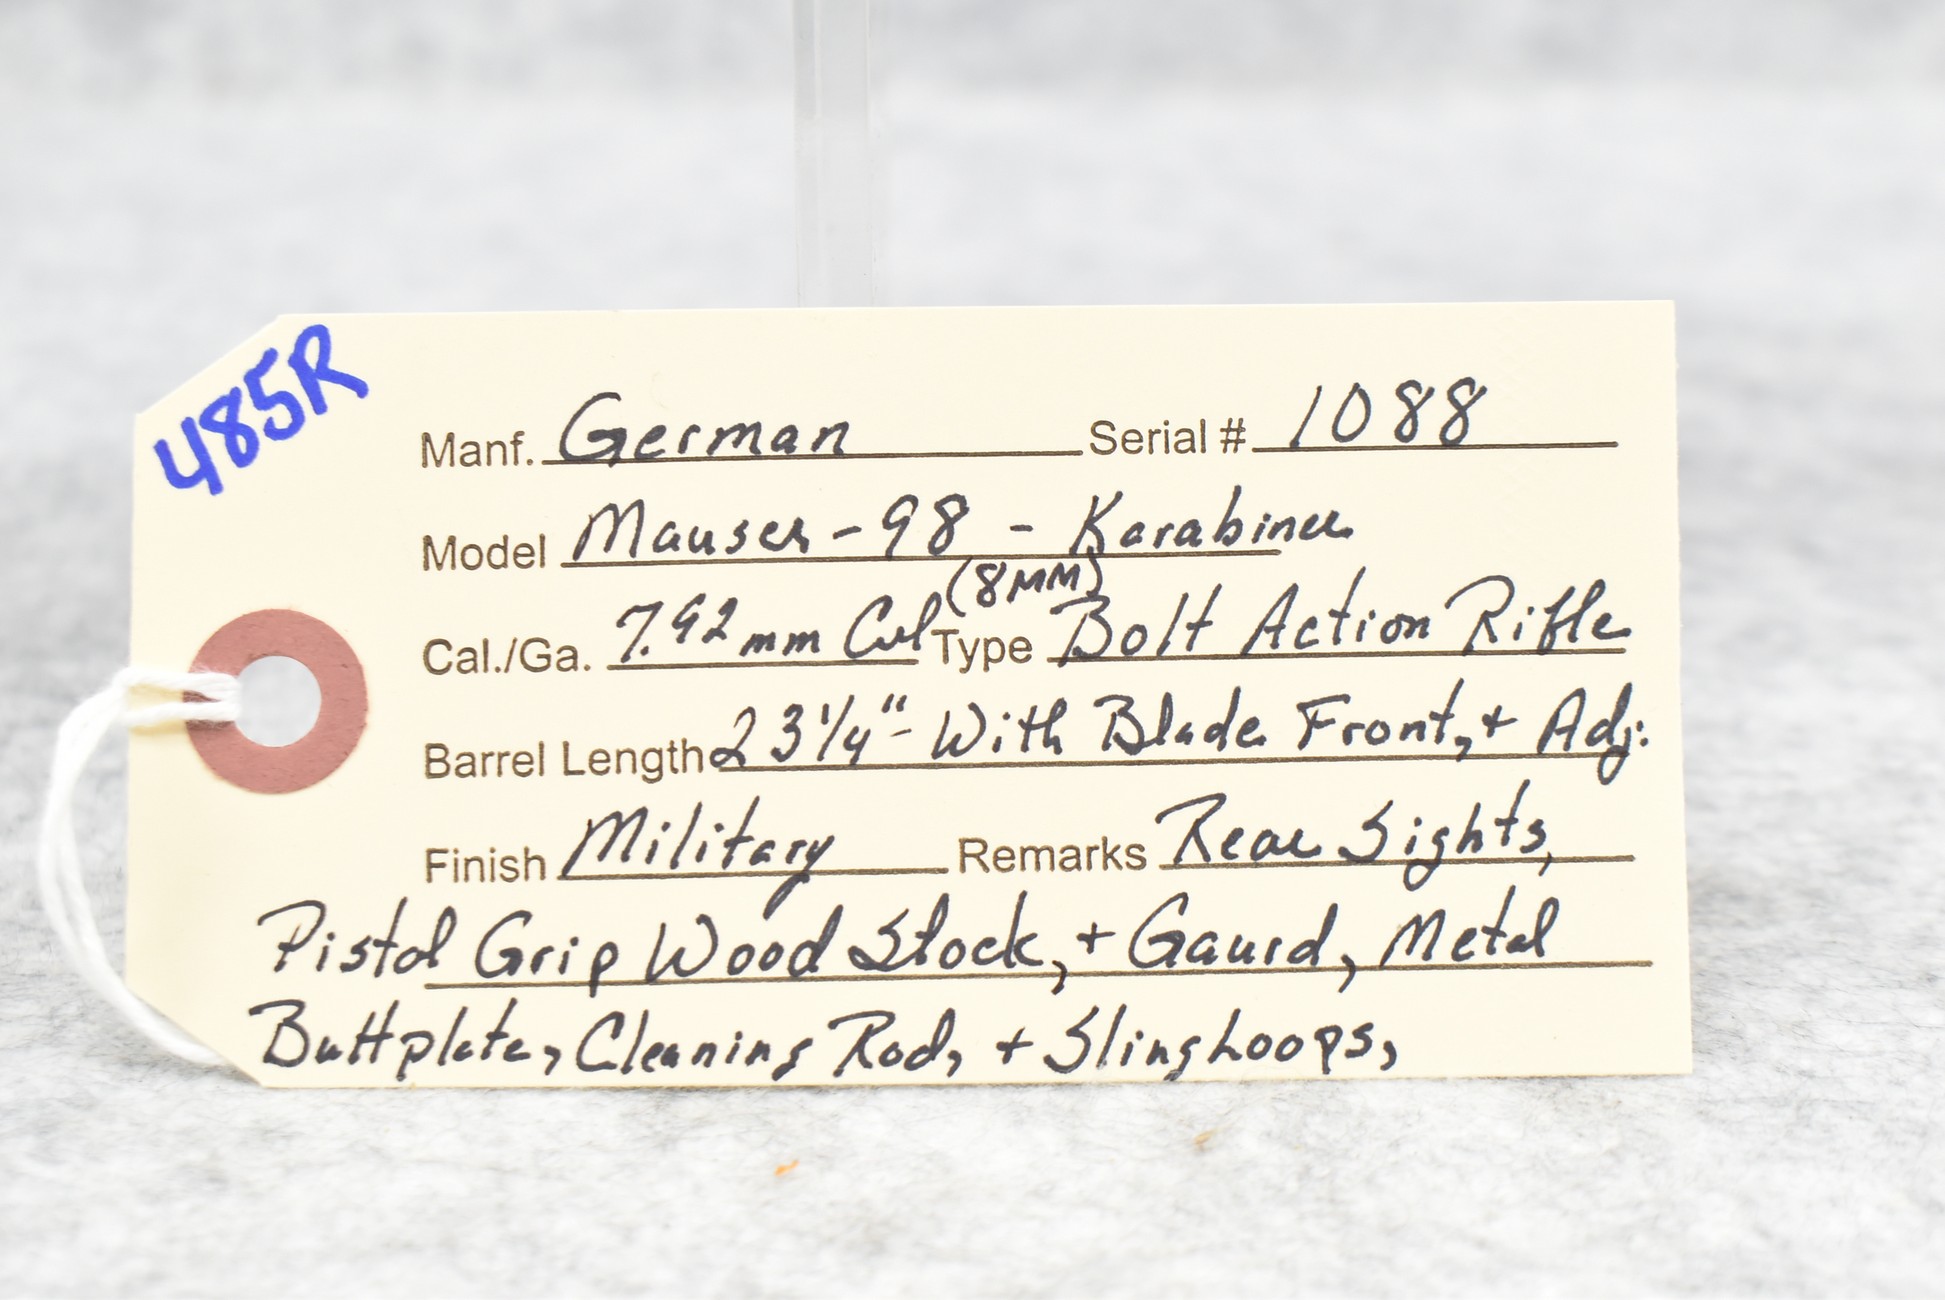 485R
Manf. German Serial # 1088
Model Mauser - 98 - Karabiner
(8MM)
Cal./Ga. 7.92mm Cal Type Bolt Action Rifle
Barrel Length 23 1/4" - With Blade Front, + Adj.
Finish Military Remarks Rear Sights,
Pistol Grip Wood Stock, + Gaurd, Metal
Buttplate, Cleaning Rod, + Sling Loops,